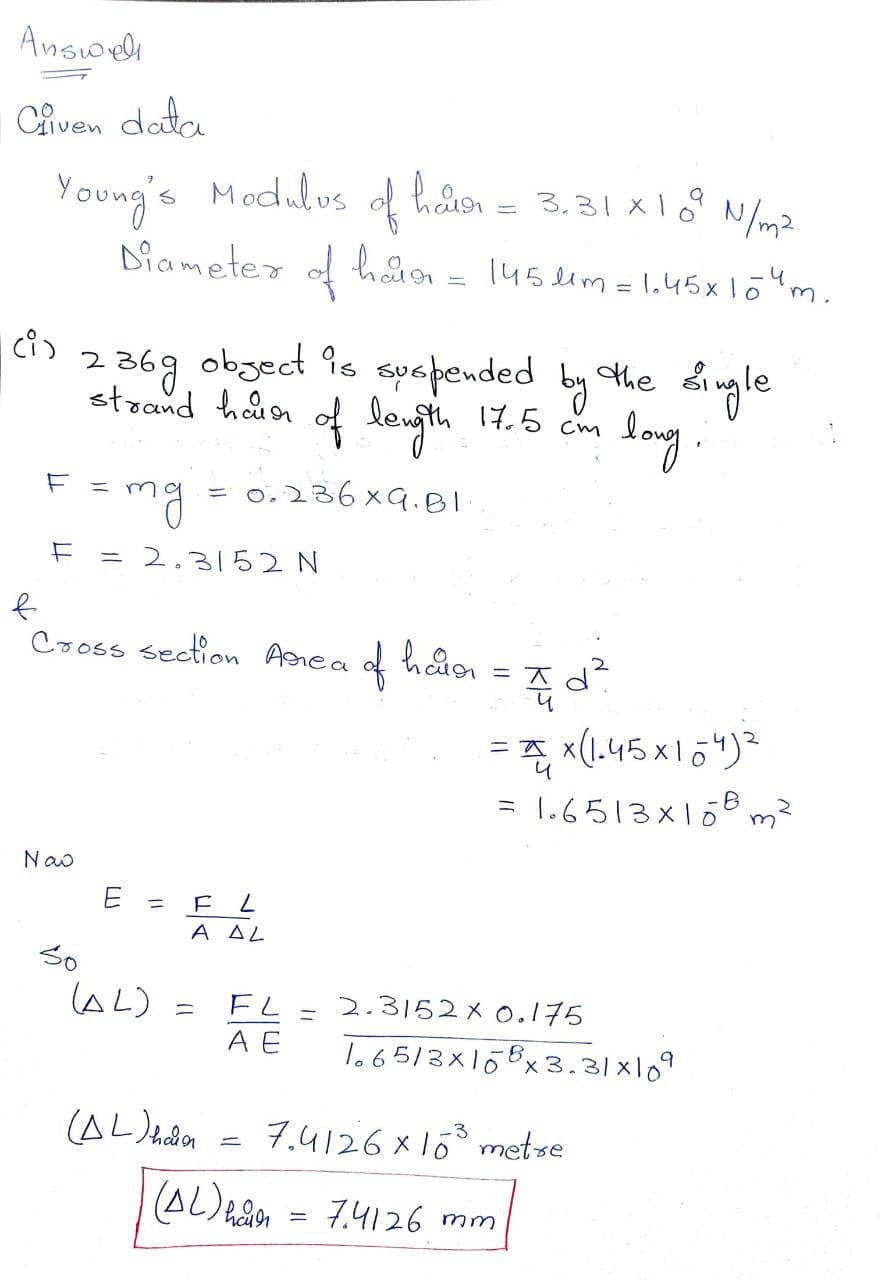 Answer
Given data
Young's Modulus of hair = 3.31 × 10⁹ N/m²
Diameter of hair = 145 μm = 1.45 × 10⁻⁴ m.
(i) 236g object is suspended by the single
strand hair of length 17.5 cm long.
F = mg = 0.236 × 9.81
F = 2.3152 N
&
Cross section Area of hair = π/4 d²
= π/4 × (1.45 × 10⁻⁴)²
= 1.6513 × 10⁻⁸ m²
Now
E = F L / A ΔL
So
(ΔL) = FL / AE = 2.3152 × 0.175 / 1.6513 × 10⁻⁸ × 3.31 × 10⁹
(ΔL)hair = 7.4126 × 10⁻³ metre
(ΔL)hair = 7.4126 mm